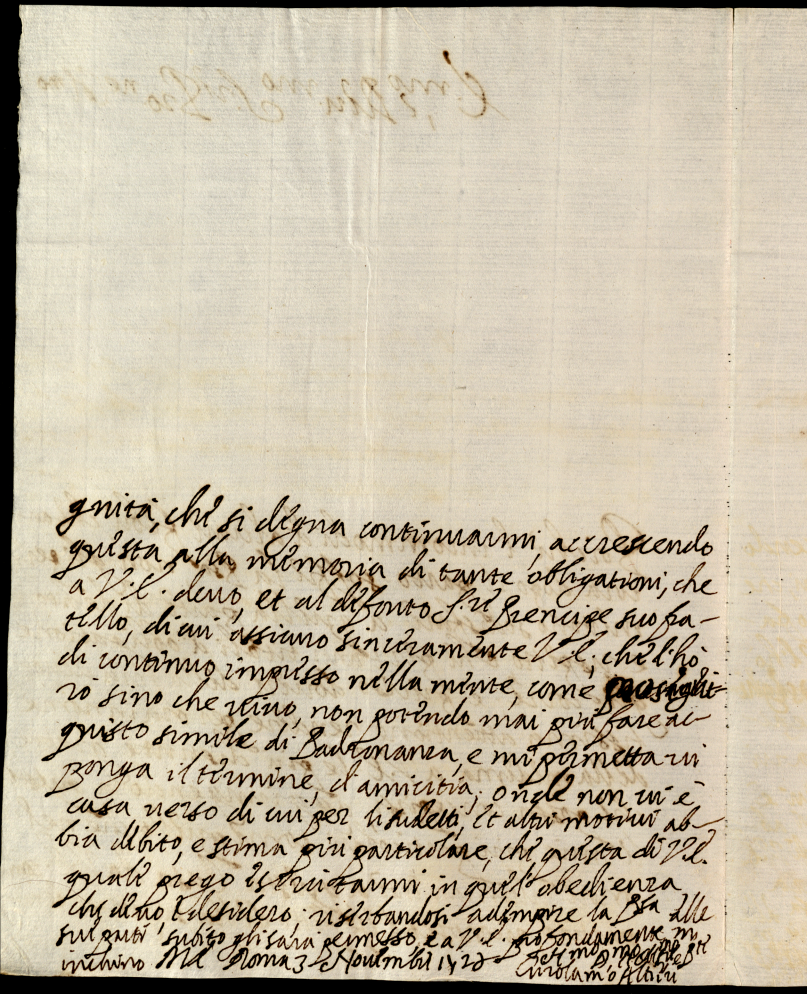 gnità, che si degna continuarmi, accrescendo
questa alla memoria di tante obligationi, che
a V. E. devo, et al defonto S.re Prencipe suo fra-
tello, di cui assicuro sinceramente V. E., che l'hò
di continuo impresso nella mente, come proseguì-
rò sino che vivo, non potendo mai più fare ac-
quisto simile di Padronanza, e mi permetta vi
ponga il termine, d'amicitia; onde non vi è
casa verso di cui per li sudetti, et altri motivi ab-
bia debito, e stima più particolare, che questa di V. E.
quale prego esercitarmi in quel'obedienza
che devo, e desidero: riserbandosi adempire la Pssa alle
sue parti, subito gli sarà permesso, e a V. E. profondamente mi
inchino Roma 3 Novembre
Girolamo Altieri